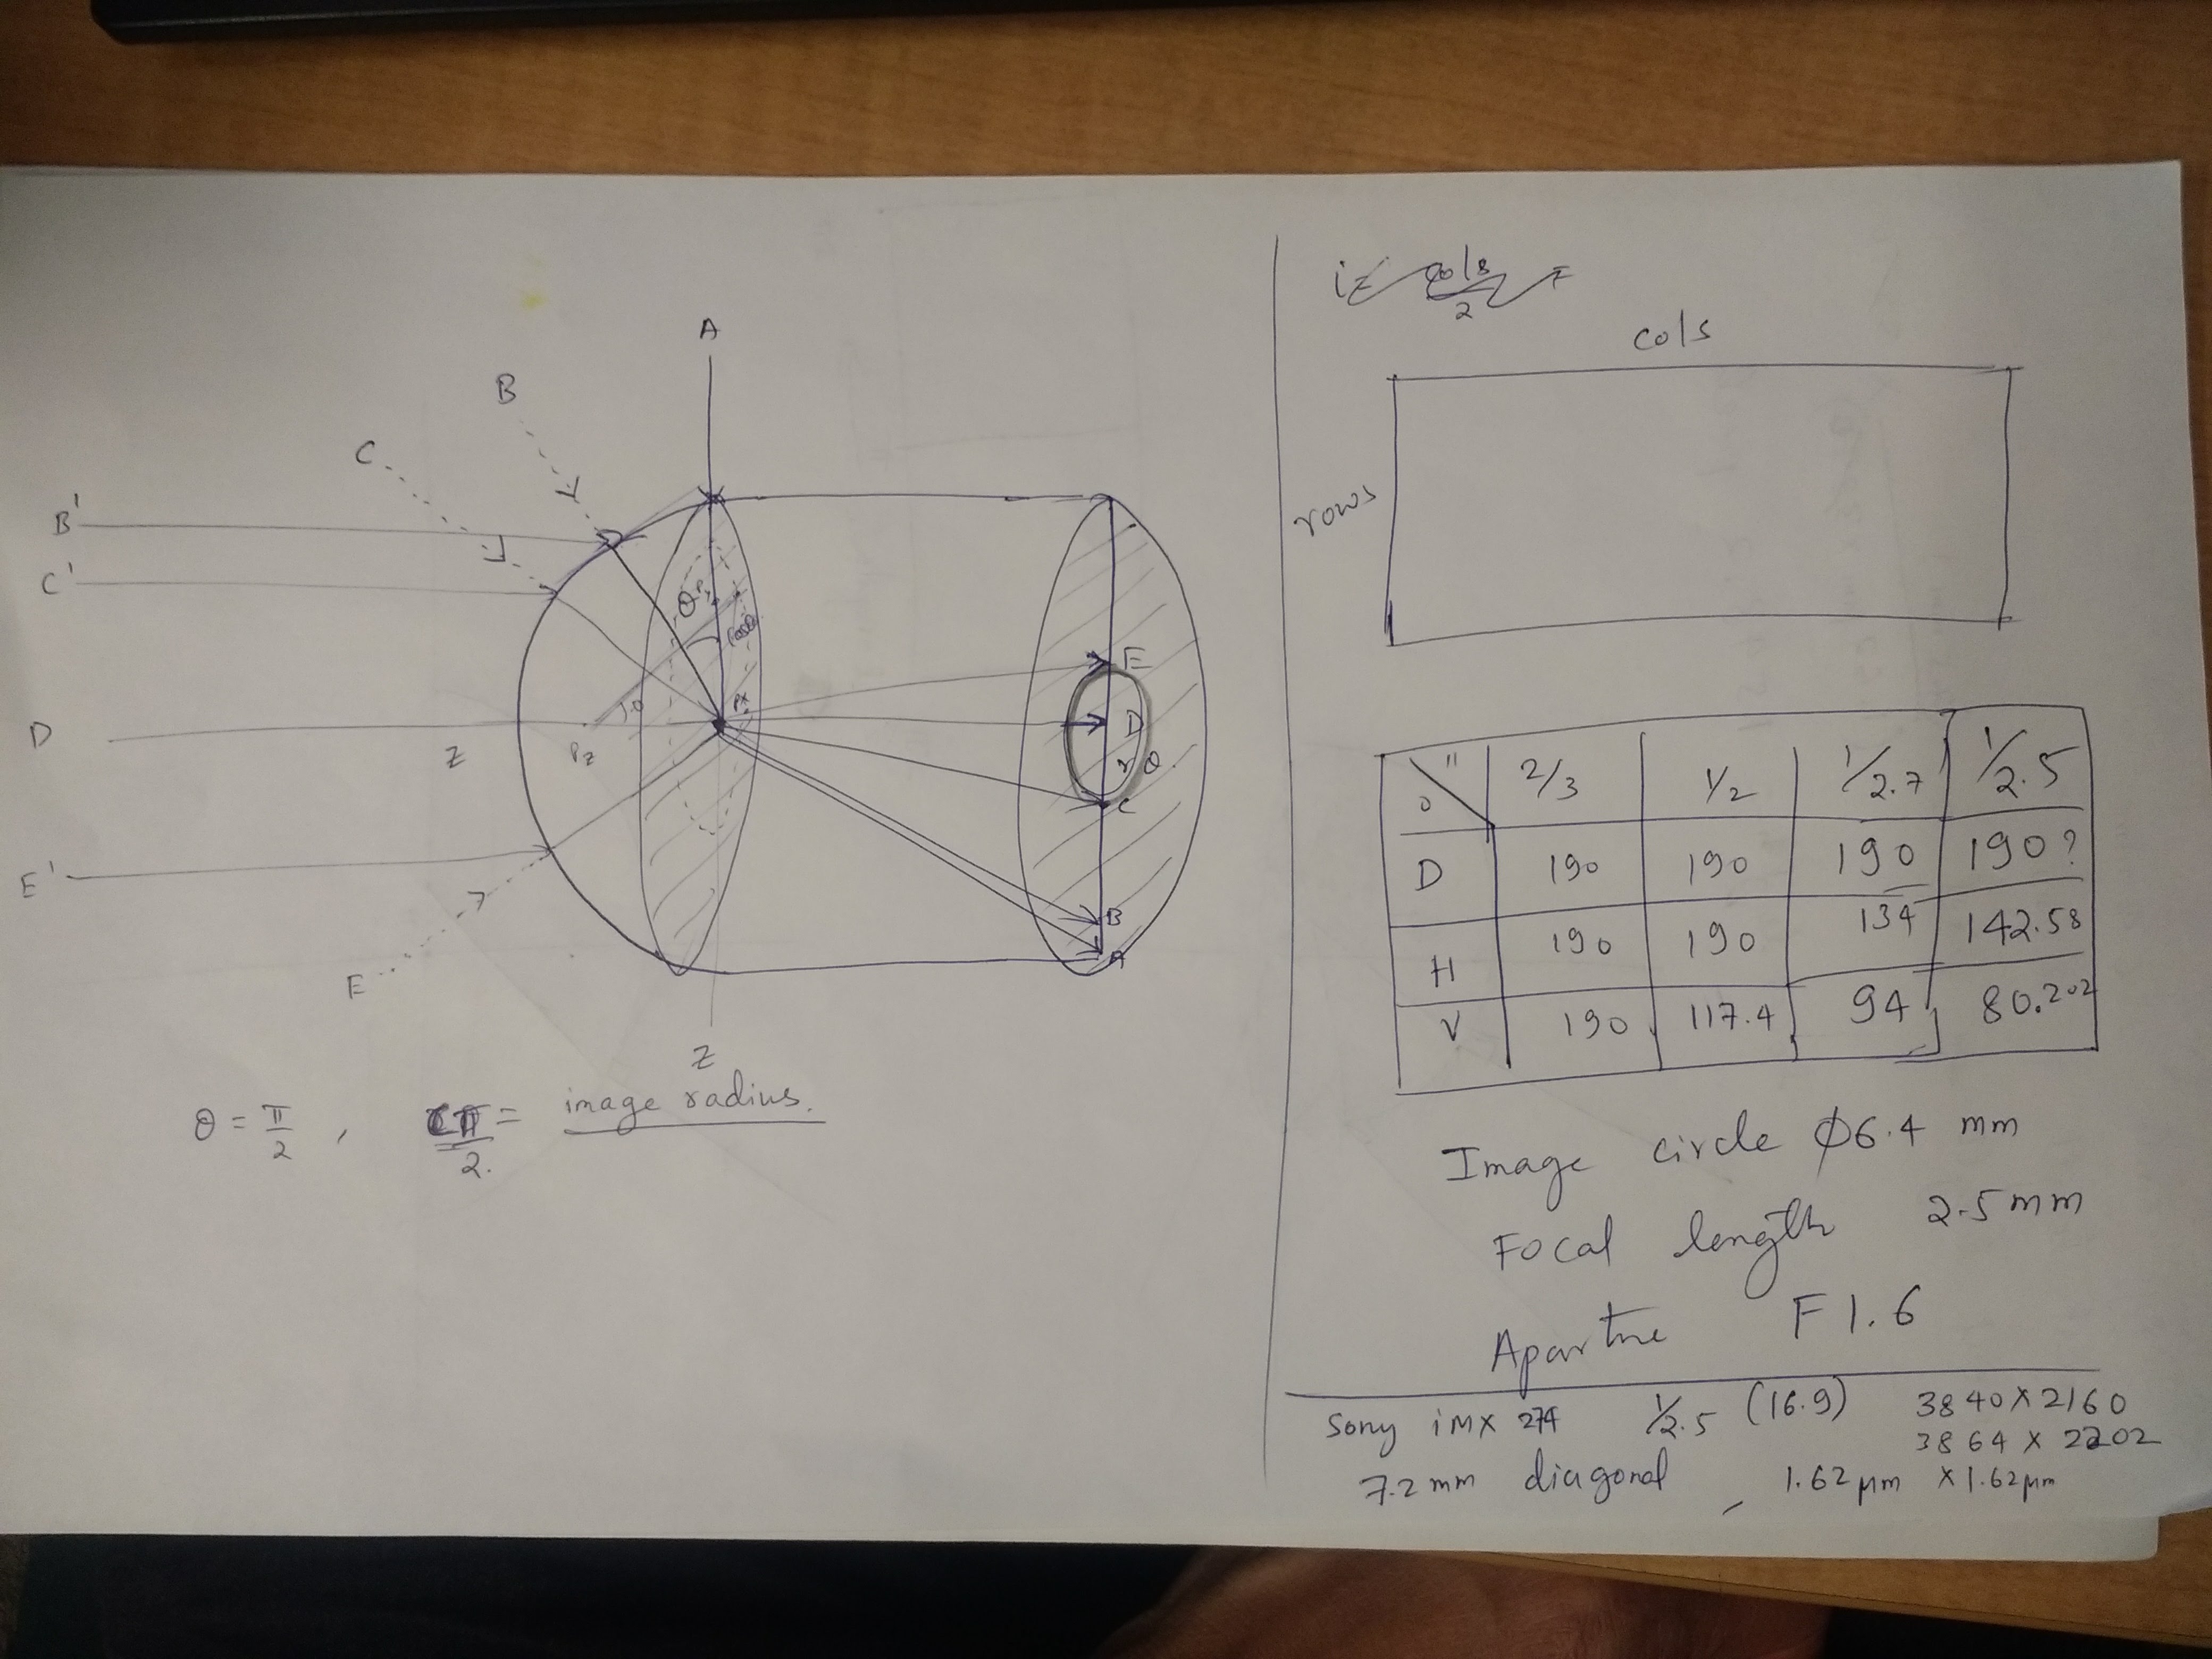 A
B
C
B'
C'
D
Z
Pz
E'
E
Z
θ
Px
E
D
rθ
C
B
A
θ = π/2 , cπ/2. = image radius.
cols
rows
° \ " 2/3 1/2 1/2.7 1/2.5
D 190 190 190 190?
H 190 190 134 142.58
V 190 117.4 94 80.202
Image circle Ø6.4 mm
Focal length 2.5mm
Aparture F1.6
Sony iMX 274 1/2.5 (16.9) 3840 X 2160
3864 X 2202
7.2 mm diagonal , 1.62 µm X 1.62µm